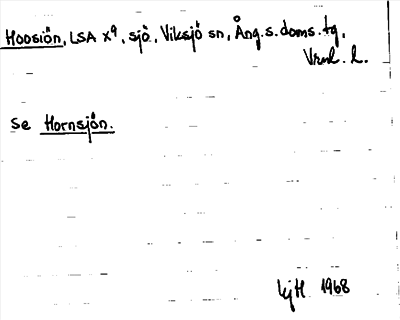 Hoosiön, LSA X⁹, sjö, Viksjö sn, Ång. s. doms. tg,
l.
Se Hornsjön.
1968